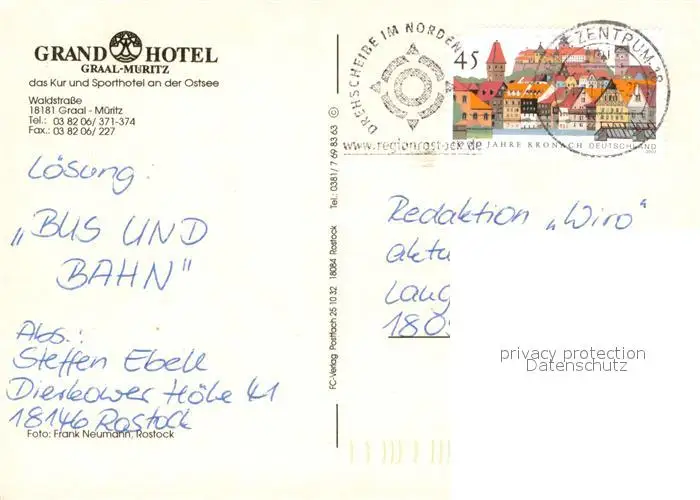 GRAND HOTEL
GRAAL-MÜRITZ
das Kur und Sporthotel an der Ostsee
Waldstraße
18181 Graal - Müritz
Tel.: 03 82 06/ 371-374
Fax.: 03 82 06/ 227
Lösung:
„BUS UND
BAHN"
Abs.:
Steffen Ebell
Dierkower Höhe 41
18146 Rostock
Foto: Frank Neumann, Rostock
FC-Verlag Postfach 25 10 32 18084 Rostock Tel.: 0381/ 7 69 83 63 ©
DREHSCHEIBE IM NORDEN
www.regionrostock.de
45
ZENTRUM
JAHRE KRONACH DEUTSCHLAND
Redaktion „Wiro"
aktu
Lang
180
privacy protection
Datenschutz